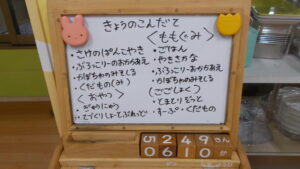 きょうのこんだて
・さけのぱんこやき
・ぶろっこりーのおかかあえ
・かぼちゃのみそしる
・くだもの(み)
〈おやつ〉
・ぎゅうにゅう
・てづくりしょーとぶれっど
〈ももぐみ〉
・ごはん
・やきざかな
・ぶろっこりーおかかあえ
・かぼちゃのみそしる
(ごごしょく)
・とまとりぞっと
・すーぷ・くだもの
5249さん
0610か